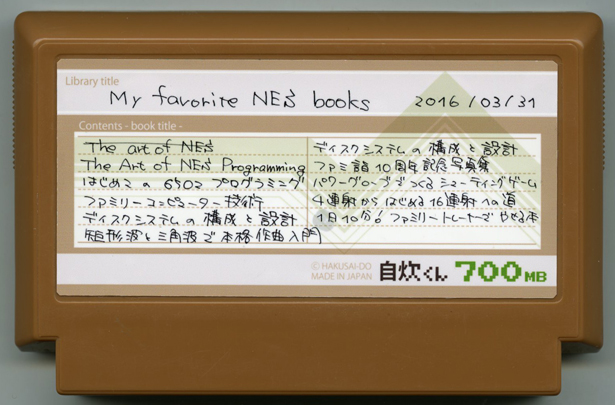 Library title
My favorite NES books 2016/03/31
Contents - book title -
The art of NES
The Art of NES Programming
はじめての 6502 プログラミング
ファミリーコンピューター技術
ディスクシステムの構成と設計
矩形波と三角波で本格作曲入門
ディスクシステムの構成と設計
ファミ詣10周年記念写真集
パワーグローブでつくるシューティングゲーム
4連射からはじめる16連射への道
1日10分! ファミリートレーナーでやせる本
© HAKUSAI-DO
MADE IN JAPAN
自炊くん 700MB